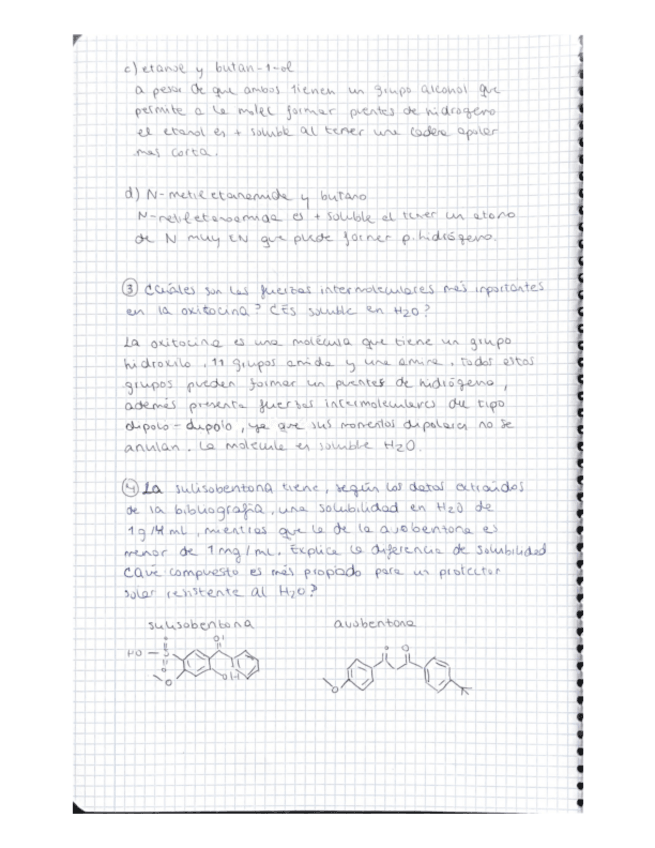 c) etanol y butan-1-ol
a pesar de que ambos tienen un grupo alcohol que
permite a la moléc formar puentes de hidrógeno
el etanol es + soluble al tener una cadena apolar
mas corta.
d) N-metil etanamida y butano
N-metiletanamida es + soluble al tener un átomo
de N muy EN que puede formar p. hidrógeno.
③ ¿Cuáles son las fuerzas intermoleculares más importantes
en la oxitocina? ¿Es soluble en H2O?
La oxitocina es una molécula que tiene un grupo
hidroxilo, 11 grupos amida y una amina. Todos estos
grupos pueden formar un puentes de hidrógeno,
además presenta fuerzas intermoleculares de tipo
dipolo-dipolo, ya que sus momentos dipolares no se
anulan. La molécula es soluble H2O.
④ La sulisobentona tiene, según los datos extraídos
de la bibliografía, una solubilidad en H2O de
1g/4 ml, mientras que la de la avobentona es
menor de 1mg/ml. Explica la diferencia de solubilidad
¿Qué compuesto es más propiado para un protector
solar resistente al H2O?
sulisobentona avobentona
HO S O O OH O O O O